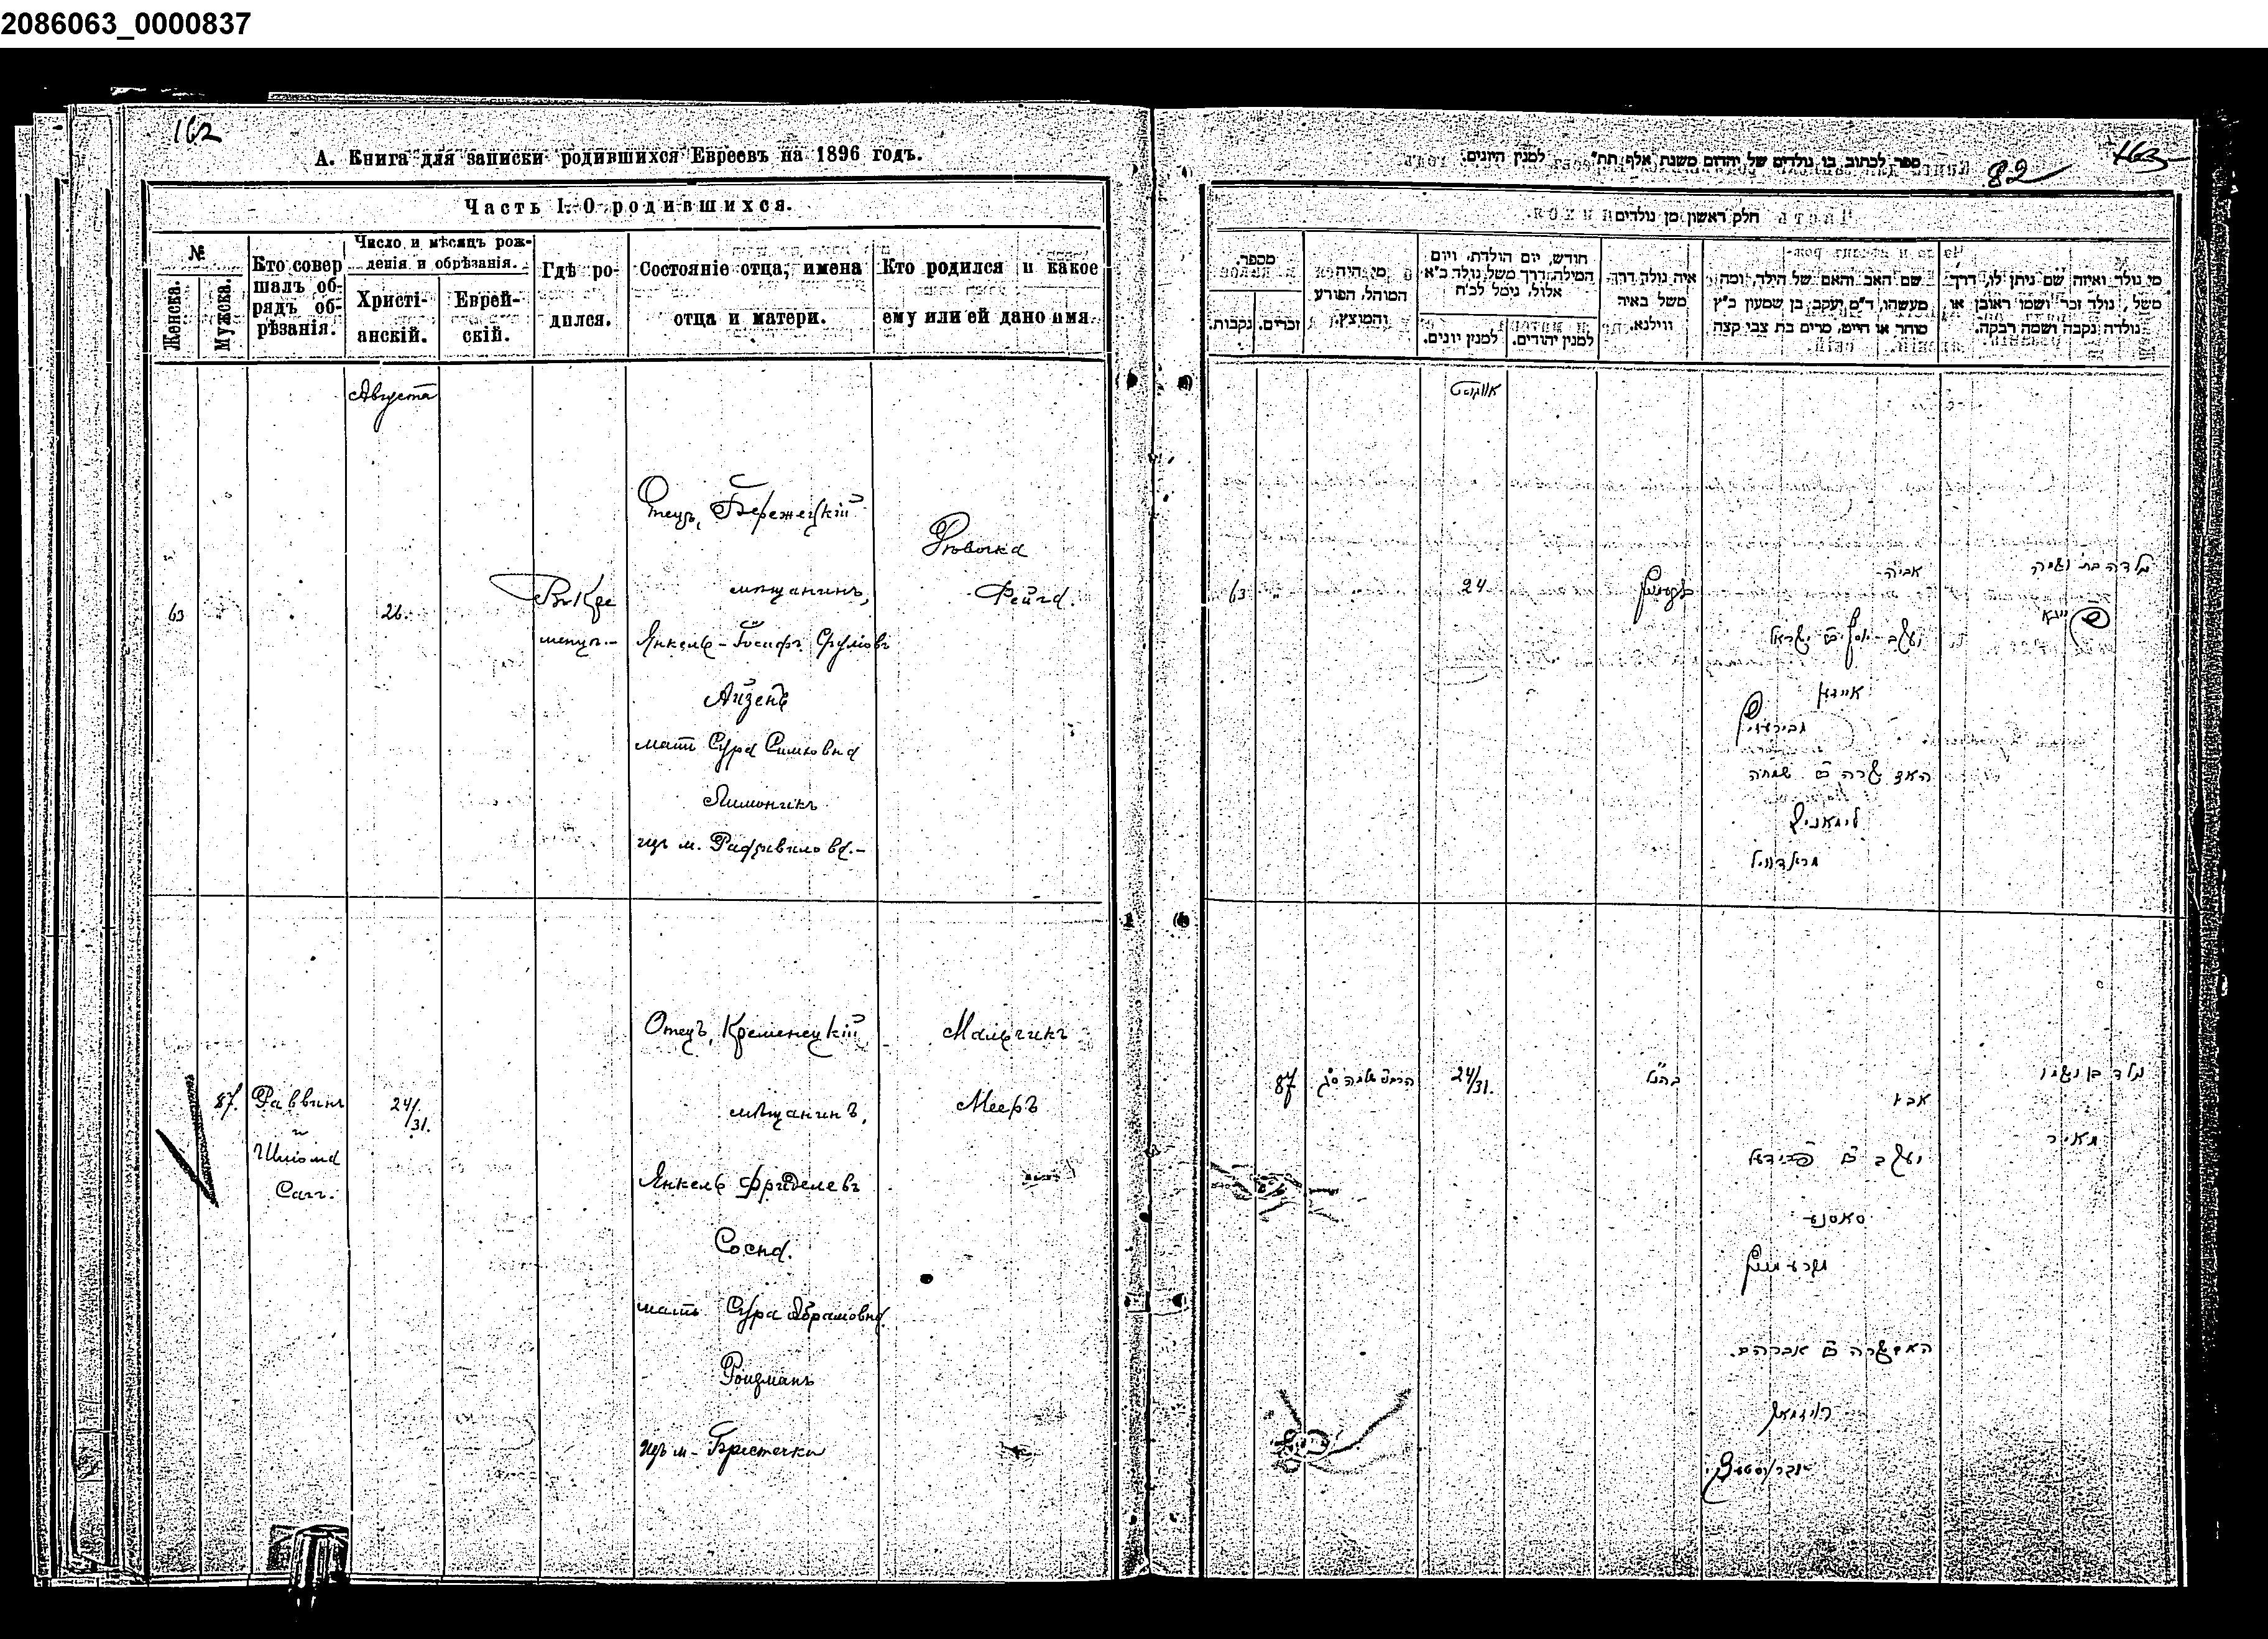 2086063_0000837
162
А. Книга для записки родившихся Евреевъ на 1896 годъ.
Часть I. О родившихся.
№
Женска.
Мужска.
Кто совер
шалъ об-
рядъ об-
рѣзанія.
Число и мѣсяцъ рож-
денія и обрѣзанія.
Христі-
анскій.
Еврей-
скій.
Гдѣ ро-
дился.
Состояніе отца, имена
отца и матери.
Кто родился и какое
ему или ей дано имя.
Августа
63
26.
Въ Кре
менцѣ.-
Отецъ, Бережецкій
мѣщанинъ,
Янкель-Іосифъ Срулевъ
Айзенъ
мать Сура Симховна
Лимоникъ
изъ м. Радзивилова.-
Дѣвочка
Фейга.
87.
Раввинъ
и
Шлома
Саг.
24/31.
Отецъ, Кременецкій
мѣщанинъ,
Янкель Фриделевъ
Сосна.
мать Сура Абрамовна
Ройзманъ
изъ м. Брестечка
Мальчикъ
Мееръ
ספר לכתוב בו נולדים של יהדים משנת אלף תת" למנין היונים.
82
163
חלק ראשון מן נולדים
מספר.
נקבות.
זכרים.
מי היה
המוהל, הפורע
והמוצץ.
חודש, יום הולדת, ויום
המילה, דרך משל נולד כ"א
אלול, נימל לכ"ח
למנין יונים.
למנין יהודים.
איה נולד דרך
משל באיה
ווילנא.
שם האב והאם של הילד, ומה
מעשהו, ד"מ יעקב בן שמעון כ"ץ
סוחר או חייט, מרים בת צבי קצה
מי נולד ואיזה שם ניתן לו, דרך
משל, נולד זכר ושמו ראובן או
נולדה נקבה ושמה רבקה.
אויגוסט
63
24
אביה
יעקב - יוסף ב"ר ישראל
האם שרה ב"ר שמחה
נולדה בת ושמה
פייגא
87
24/31.
כהנ"ל
אביו
יעקב ב"ר פרידל
האם שרה ב"ר אברהם.
רויזמאן
נולד בן ושמו
מאיר